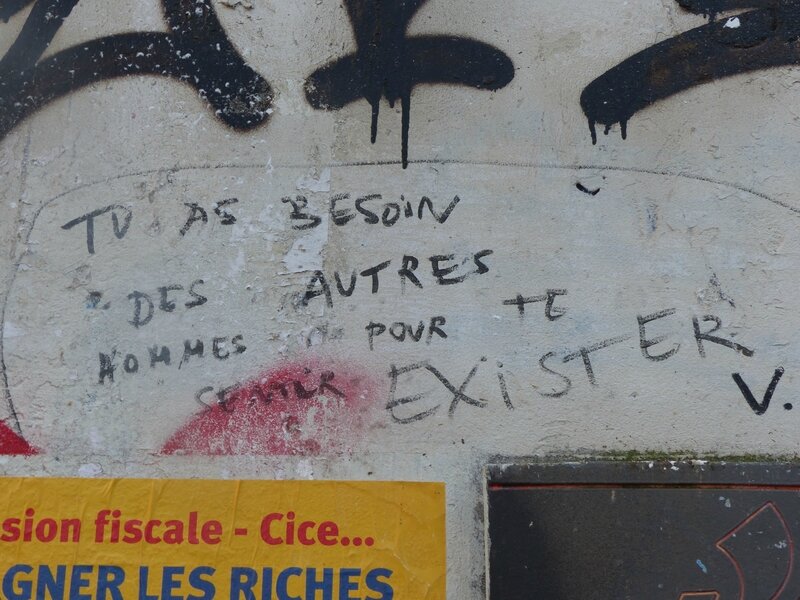 TU AS BESOIN
DES AUTRES
HOMMES POUR TE
SENTIR EXISTER
V.
sion fiscale - Cice...
AGNER LES RICHES